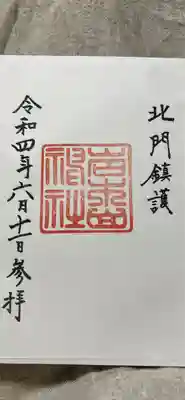 北門鎮護
岩木山
神社
令和四年六月十一日参拝